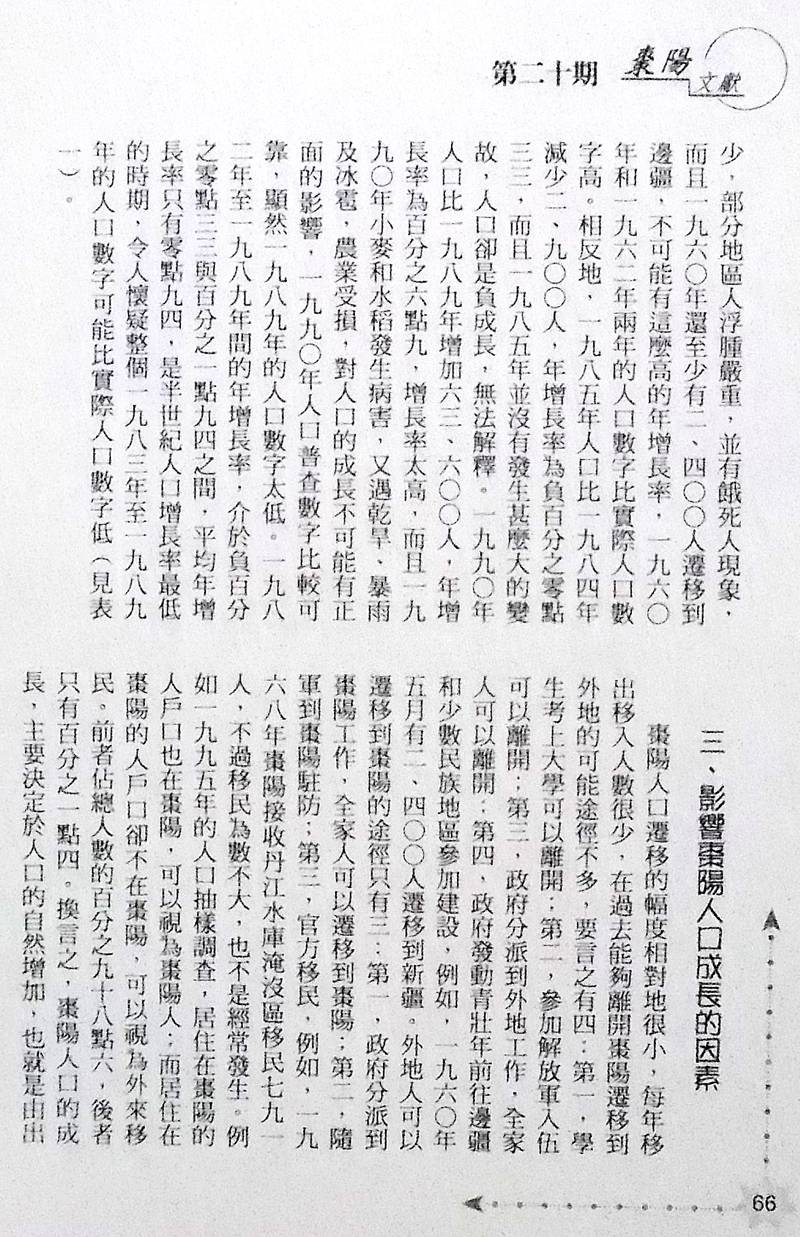 棗陽
文獻
第二十期
少，部分地區人浮腫嚴重，並有餓死人現象，
而且一九六〇年還至少有二、四〇〇人遷移到
邊疆，不可能有這麼高的年增長率，一九六〇
年和一九六二年兩年的人口數字比實際人口數
字高。相反地，一九八五年人口比一九八四年
減少二、九〇〇人，年增長率為負百分之零點
三三，而且一九八五年並沒有發生甚麼大的變
故，人口卻是負成長，無法解釋。一九九〇年
人口比一九八九年增加六三、六〇〇人，年增
長率為百分之六點九，增長率太高，而且一九
九〇年小麥和水稻發生病害，又遇乾旱、暴雨
及冰雹，農業受損，對人口的成長不可能有正
面的影響，一九九〇年人口普查數字比較可
靠，顯然一九八九年的人口數字太低。一九八
二年至一九八九年間的年增長率，介於負百分
之零點三三與百分之一點九四之間，平均年增
長率只有零點九四，是半世紀人口增長率最低
的時期，令人懷疑整個一九八三年至一九八九
年的人口數字可能比實際人口數字低（見表
一）。
三、影響棗陽人口成長的因素
棗陽人口遷移的幅度相對地很小，每年移
出移入人數很少，在過去能夠離開棗陽遷移到
外地的可能途徑不多，要言之有四：第一，學
生考上大學可以離開；第二，參加解放軍入伍
可以離開；第三，政府分派到外地工作，全家
人可以離開；第四，政府發動青壯年前往邊疆
和少數民族地區參加建設，例如，一九六〇年
五月有二、四〇〇人遷移到新疆。外地人可以
遷移到棗陽的途徑只有三：第一，政府分派到
棗陽工作，全家人可以遷移到棗陽；第二，隨
軍到棗陽駐防；第三，官方移民，例如，一九
六八年棗陽接收丹江水庫淹沒區移民七九一
人，不過移民為數不大，也不是經常發生。例
如一九九五年的人口抽樣調查，居住在棗陽的
人戶口也在棗陽，可以視為棗陽人；而居住在
棗陽的人戶口卻不在棗陽，可以視為外來移
民。前者佔總人數的百分之九十八點六，後者
只有百分之一點四。換言之，棗陽人口的成
長，主要決定於人口的自然增加，也就是由出
66